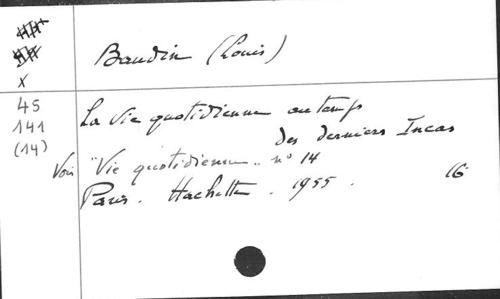 Baudin (Louis)
X
45
141
(14)
La Vie quotidienne au temps
des derniers Incas
Voir "Vie quotidienne" n° 14
Paris. Hachette. 1955. 16